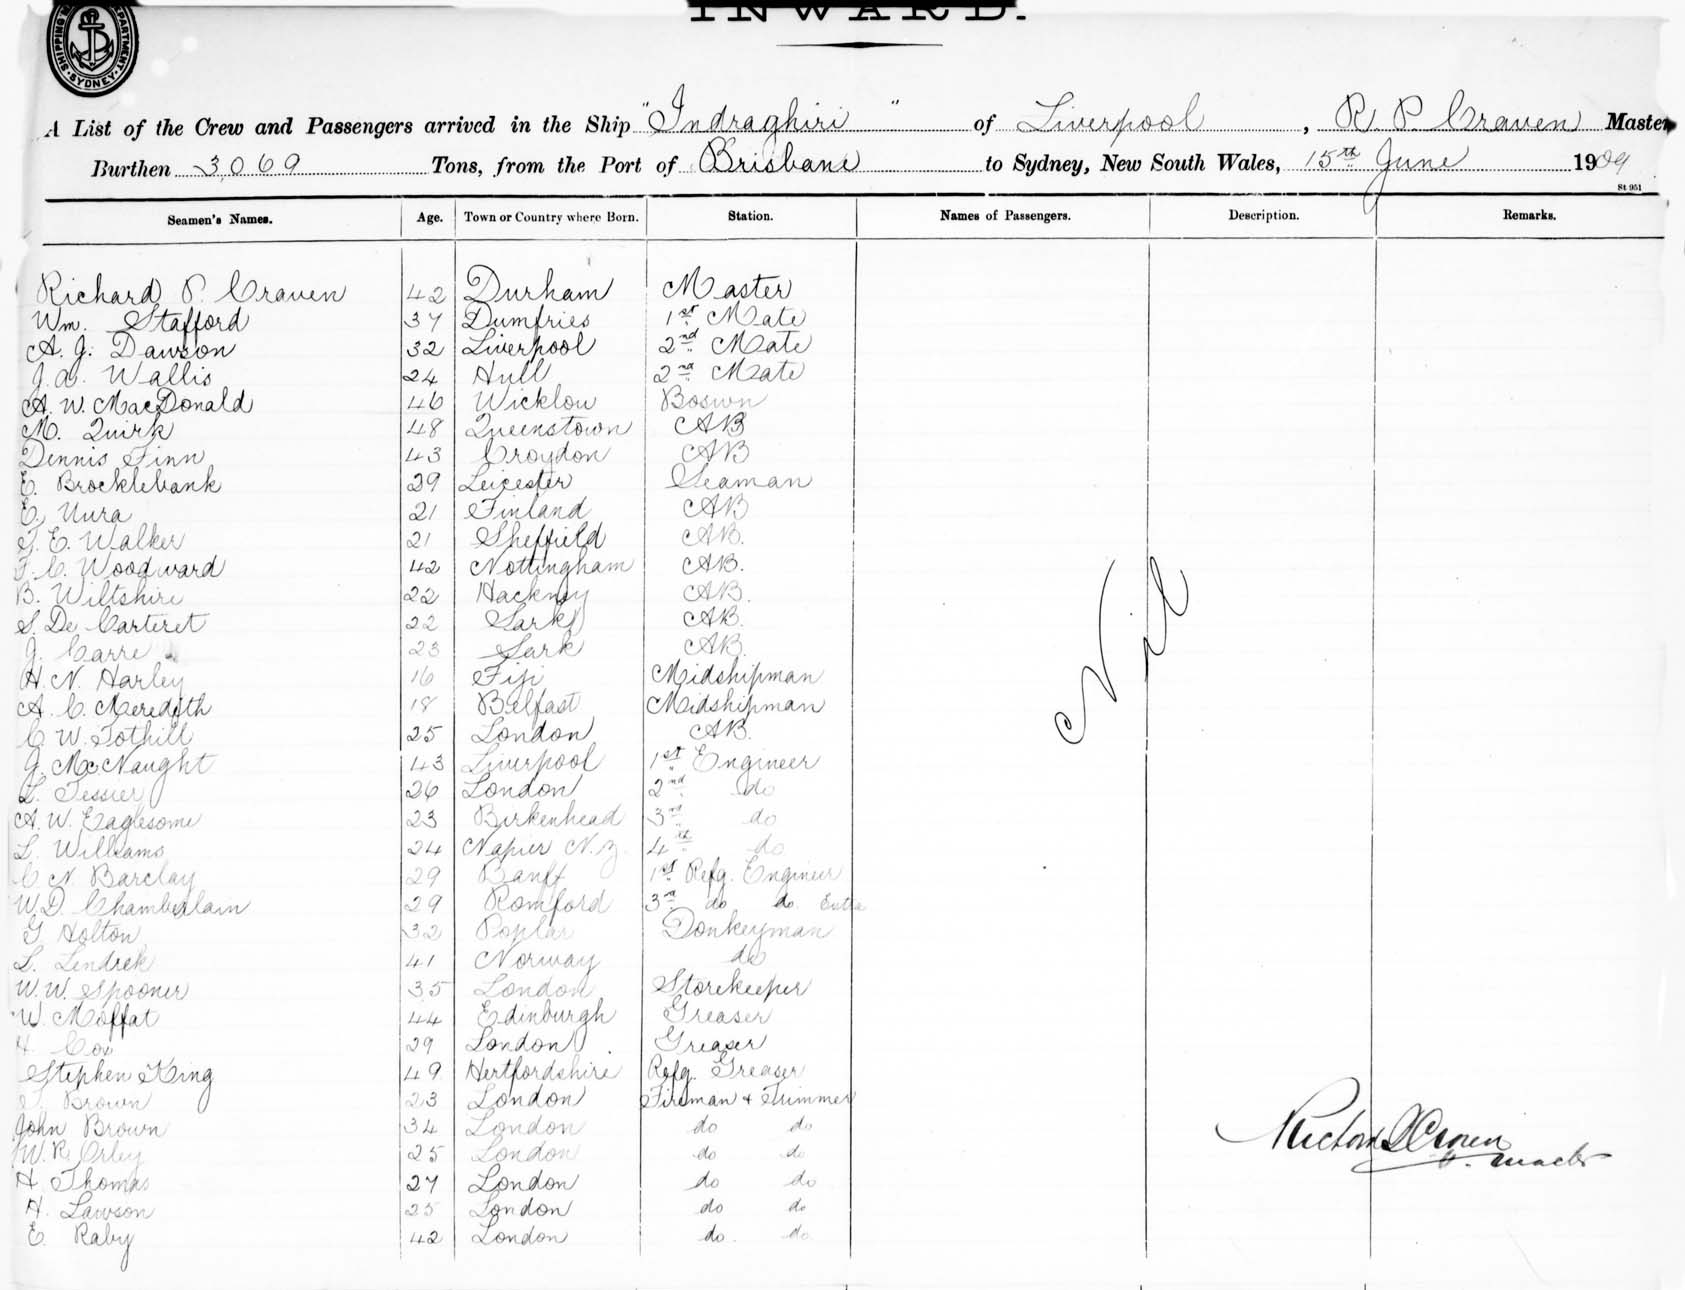 INWARD.
SHIPPING DEPARTMENT SYDNEY
A List of the Crew and Passengers arrived in the Ship "Indraghiri" of Liverpool, R. P. Craven Master
Burthen 3,069 Tons, from the Port of Brisbane to Sydney, New South Wales, 15th June 1909
St 951
Seamen's Names. Age. Town or Country where Born. Station. Names of Passengers. Description. Remarks.
Richard P. Craven 42 Durham Master
Wm. Stafford 37 Dumfries 1st Mate
A. J. Dawson 32 Liverpool 2nd Mate
J. A. Wallis 24 Hull 2nd Mate
A. W. MacDonald 46 Wicklow Boswn
M. Quirk 48 Queenstown AB
Dennis Finn 43 Croydon AB
E. Brocklebank 29 Leicester Seaman
E. Uura 21 Finland AB
E. Walker 21 Sheffield AB.
F. C. Woodward 42 Nottingham AB.
B. Wiltshire 22 Hackney AB.
S. De Carteret 22 Sark AB.
J. Carre 23 Sark AB.
H. N. Harley 16 Fiji Midshipman
A. C. Meredith 18 Belfast Midshipman
C. W. Tothill 25 London AB.
J. McNaught 43 Liverpool 1st Engineer
L. Tessier 26 London 2nd do
A. W. Eaglesome 23 Birkenhead 3rd do
L. Williams 24 Napier N.Z. 4th do
C. N. Barclay 29 Banff 1st Refg. Engineer
W. D. Chamberlain 29 Romford 3rd do do. Extra
G Holton 32 Poplar Donkeyman
L. Lendrek 41 Norway do
W. W. Spooner 35 London Storekeeper
W. Moffat 44 Edinburgh Greaser
H. Cox 29 London Greaser
Stephen King 49 Hertfordshire Refg. Greaser
Brown 23 London Fireman & Trimmer
John Brown 34 London do do
W. R. Orley 25 London do do
H. Thomas 27 London do do
H. Lawson 25 London do do
E. Raby 42 London do. do.
Nil
Richard P Craven
Master